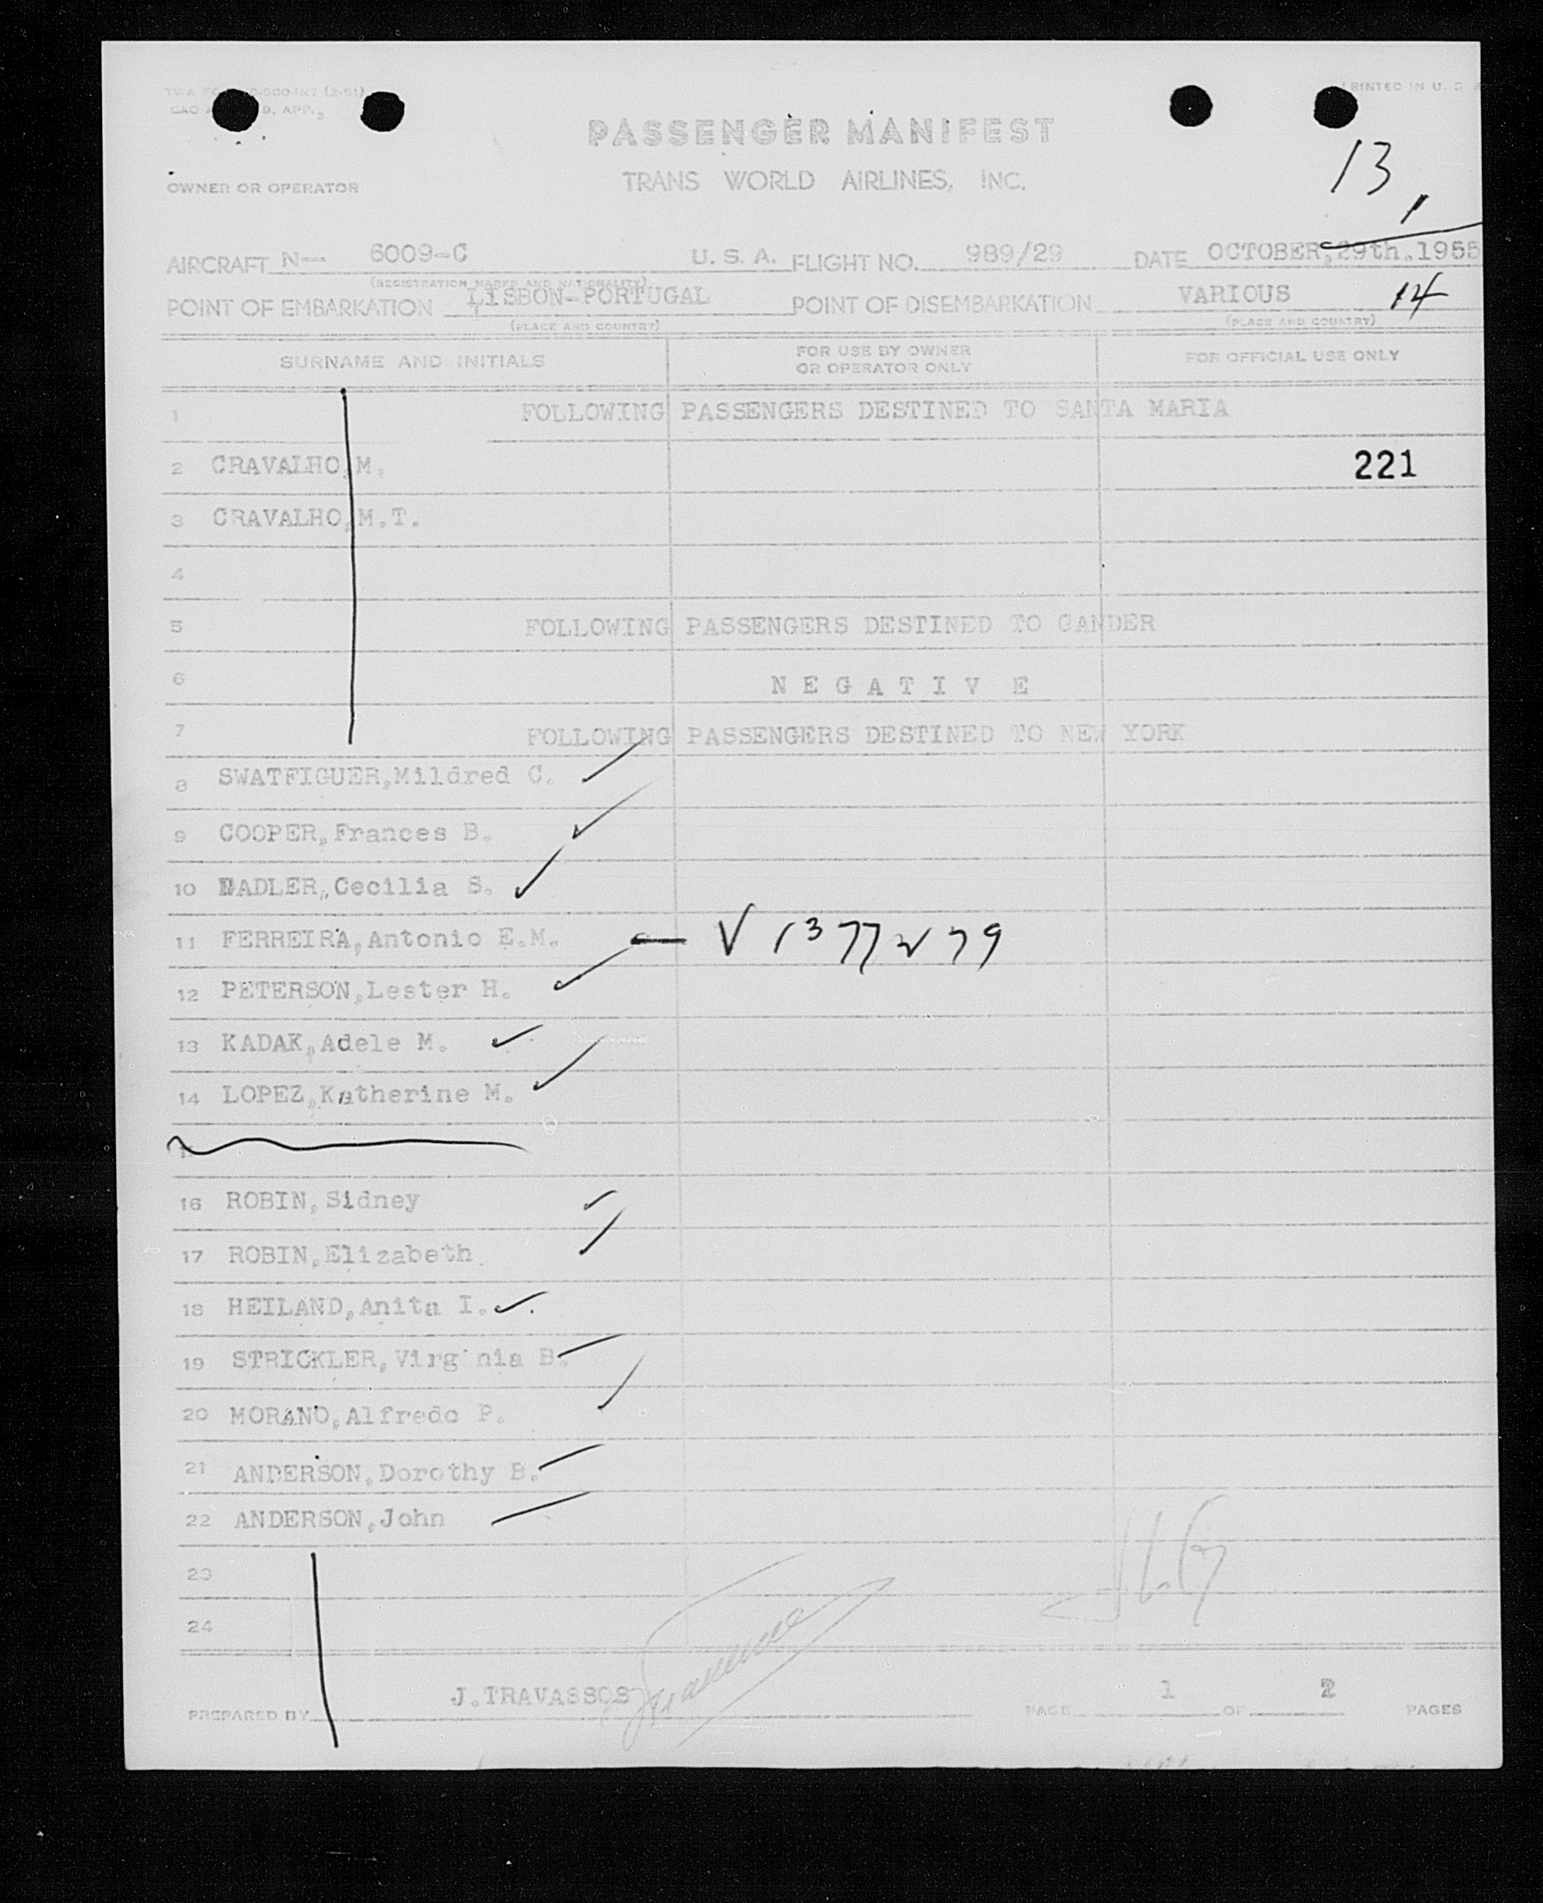 PRINTED IN U. S. A
PASSENGER MANIFEST
13
OWNER OR OPERATOR TRANS WORLD AIRLINES, INC.
AIRCRAFT N— 6009-C U. S. A. FLIGHT NO. 989/29 DATE OCTOBER,29th.1955
(REGISTRATION MARKS AND NATIONALITY)
POINT OF EMBARKATION LISBON-PORTUGAL POINT OF DISEMBARKATION VARIOUS 14
(PLACE AND COUNTRY) (PLACE AND COUNTRY)
SURNAME AND INITIALS FOR USE BY OWNER OR OPERATOR ONLY FOR OFFICIAL USE ONLY
1 FOLLOWING PASSENGERS DESTINED TO SANTA MARIA
2 CRAVALHO,M. 221
3 CRAVALHO,M.T.
4
5 FOLLOWING PASSENGERS DESTINED TO GANDER
6 N E G A T I V E
7 FOLLOWING PASSENGERS DESTINED TO NEW YORK
8 SWATFIGUER,Mildred C.
9 COOPER,Frances B.
10 DADLER,Cecilia S.
11 FERREIRA,Antonio E.M. — V 1377279
12 PETERSON,Lester H.
13 KADAK,Adele M.
14 LOPEZ,Katherine M.
16 ROBIN,Sidney
17 ROBIN,Elizabeth
18 HEILAND,Anita I.
19 STRICKLER,Virg nia B.
20 MORANO,Alfredo P.
21 ANDERSON,Dorothy B.
22 ANDERSON,John
23
24
PREPARED BY J.TRAVASSOS PAGE 1 OF 2 PAGES